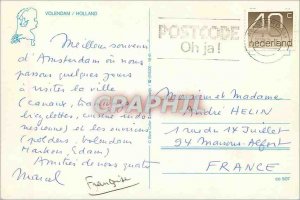 VOLENDAM / HOLLAND
POSTCODE
Oh ja!
40c
nederland
Meilleur souvenir
d'Amsterdam où nous
passons quelques jours
à visiter la ville
(canaux, tramways,
bicyclettes, cuisine indo-
nésienne) et les environs
(polders, Volendam
Marken, Edam)
Amitiés de nous quatre
Marcel
Françoise
Monsieur et Madame
André HELIN
1 rue du 14 Juillet
94 Maisons-Alfort
FRANCE
PHARTIF